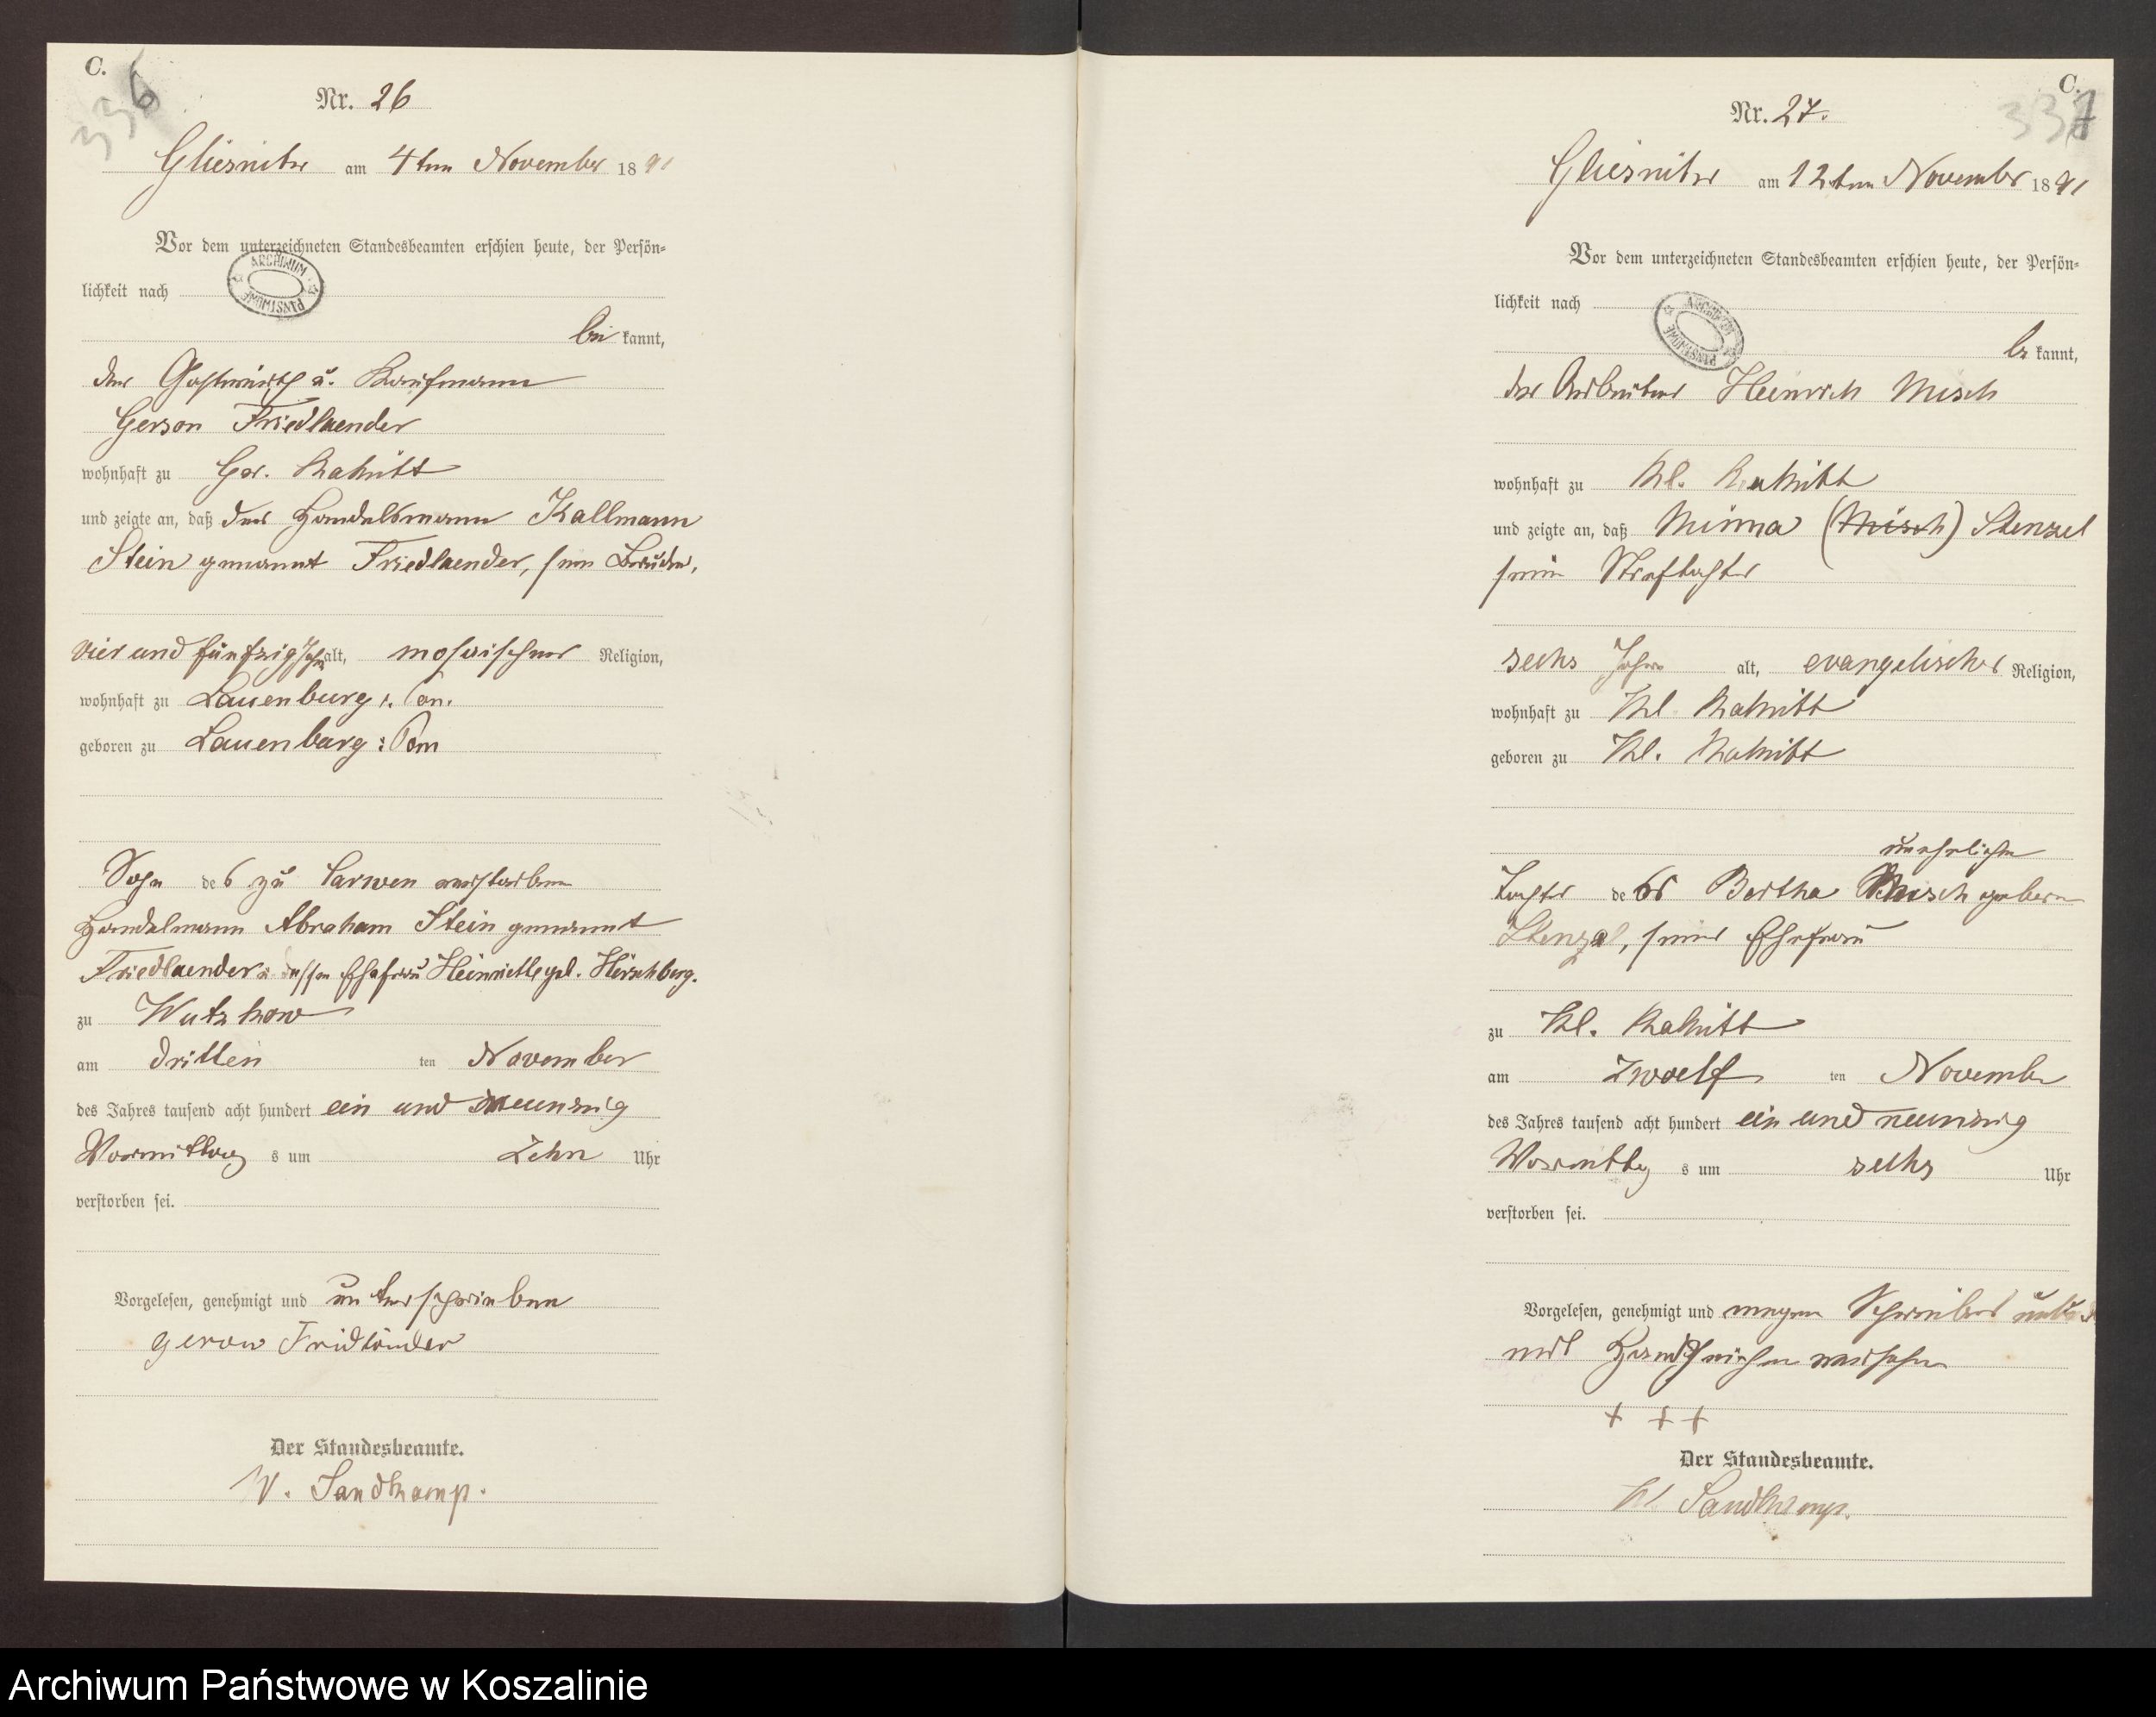 C.
336
Nr. 26
Gliesnitz am 4ten November 1891
Vor dem unterzeichneten Standesbeamten erschien heute, der Persön-
lichkeit nach
ARCHIWUM PAŃSTWOWE
be kannt,
der Gastwirth u. Kaufmann
Gerson Friedlaender
wohnhaft zu Gr. Rakitt
und zeigte an, daß der Handelsmann Kallmann
Stein genannt Friedlaender, sein Bruder,
vier und fünfzig Jahre alt, mosaischer Religion,
wohnhaft zu Lauenburg i. Pom.
geboren zu Lauenburg i Pom
Sohn des zu Sarwen verstorbenen
Handelmann Abraham Stein genannt
Friedlaender u dessen Ehefrau Heinriette geb. Hirschberg.
zu Wutzkow
am dritten ten November
des Jahres tausend acht hundert ein und neunzig
Vormittag s um Zehn Uhr
verstorben sei.
Vorgelesen, genehmigt und unterschrieben
gerson Fridländer
Der Standesbeamte.
W. Sandkamp.
C.
337
Nr. 27.
Gliesnitz am 12ten November 1891
Vor dem unterzeichneten Standesbeamten erschien heute, der Persön-
lichkeit nach
ARCHIWUM PAŃSTWOWE
be kannt,
der Arbeiter Heinrich Misch
wohnhaft zu Kl. Rakitt
und zeigte an, daß Minna (Misch) Stenzel
seine Stieftochter
sechs Jahre alt, evangelischer Religion,
wohnhaft zu Kl. Rakitt
geboren zu Kl. Rakitt
unehelichen
Tochter der Bertha Misch geborne
Stenzel, seiner Ehefrau
zu Kl. Rakitt
am Zwoelf ten November
des Jahres tausend acht hundert ein und neunzig
Vormittag s um sechs Uhr
verstorben sei.
Vorgelesen, genehmigt und wegen Schreibens
mit Handzeichen versehen
+ + +
Der Standesbeamte.
W. Sandkamp.
Archiwum Państwowe w Koszalinie